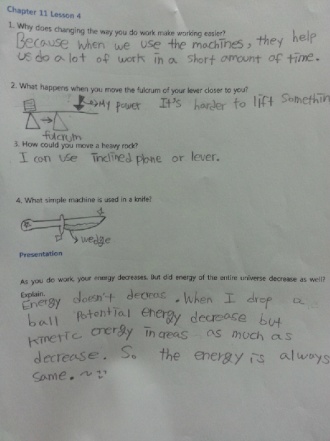 Chapter 11 Lesson 4
1. Why does changing the way you do work make working easier?
Because when we use the machines, they help
us do a lot of work in a short amount of time.
2. What happens when you move the fulcrum of your lever closer to you?
My power It's harder to lift Somethin
fulcrum
3. How could you move a heavy rock?
I can use inclined plane or lever.
4. What simple machine is used in a knife?
wedge
Presentation
As you do work, your energy decreases. But did energy of the entire universe decrease as well?
Explain.
Energy doesn't decreas. When I drop a
ball Potential energy decrease but
kinetic energy increas as much as
decrease. So the energy is always
same. ~